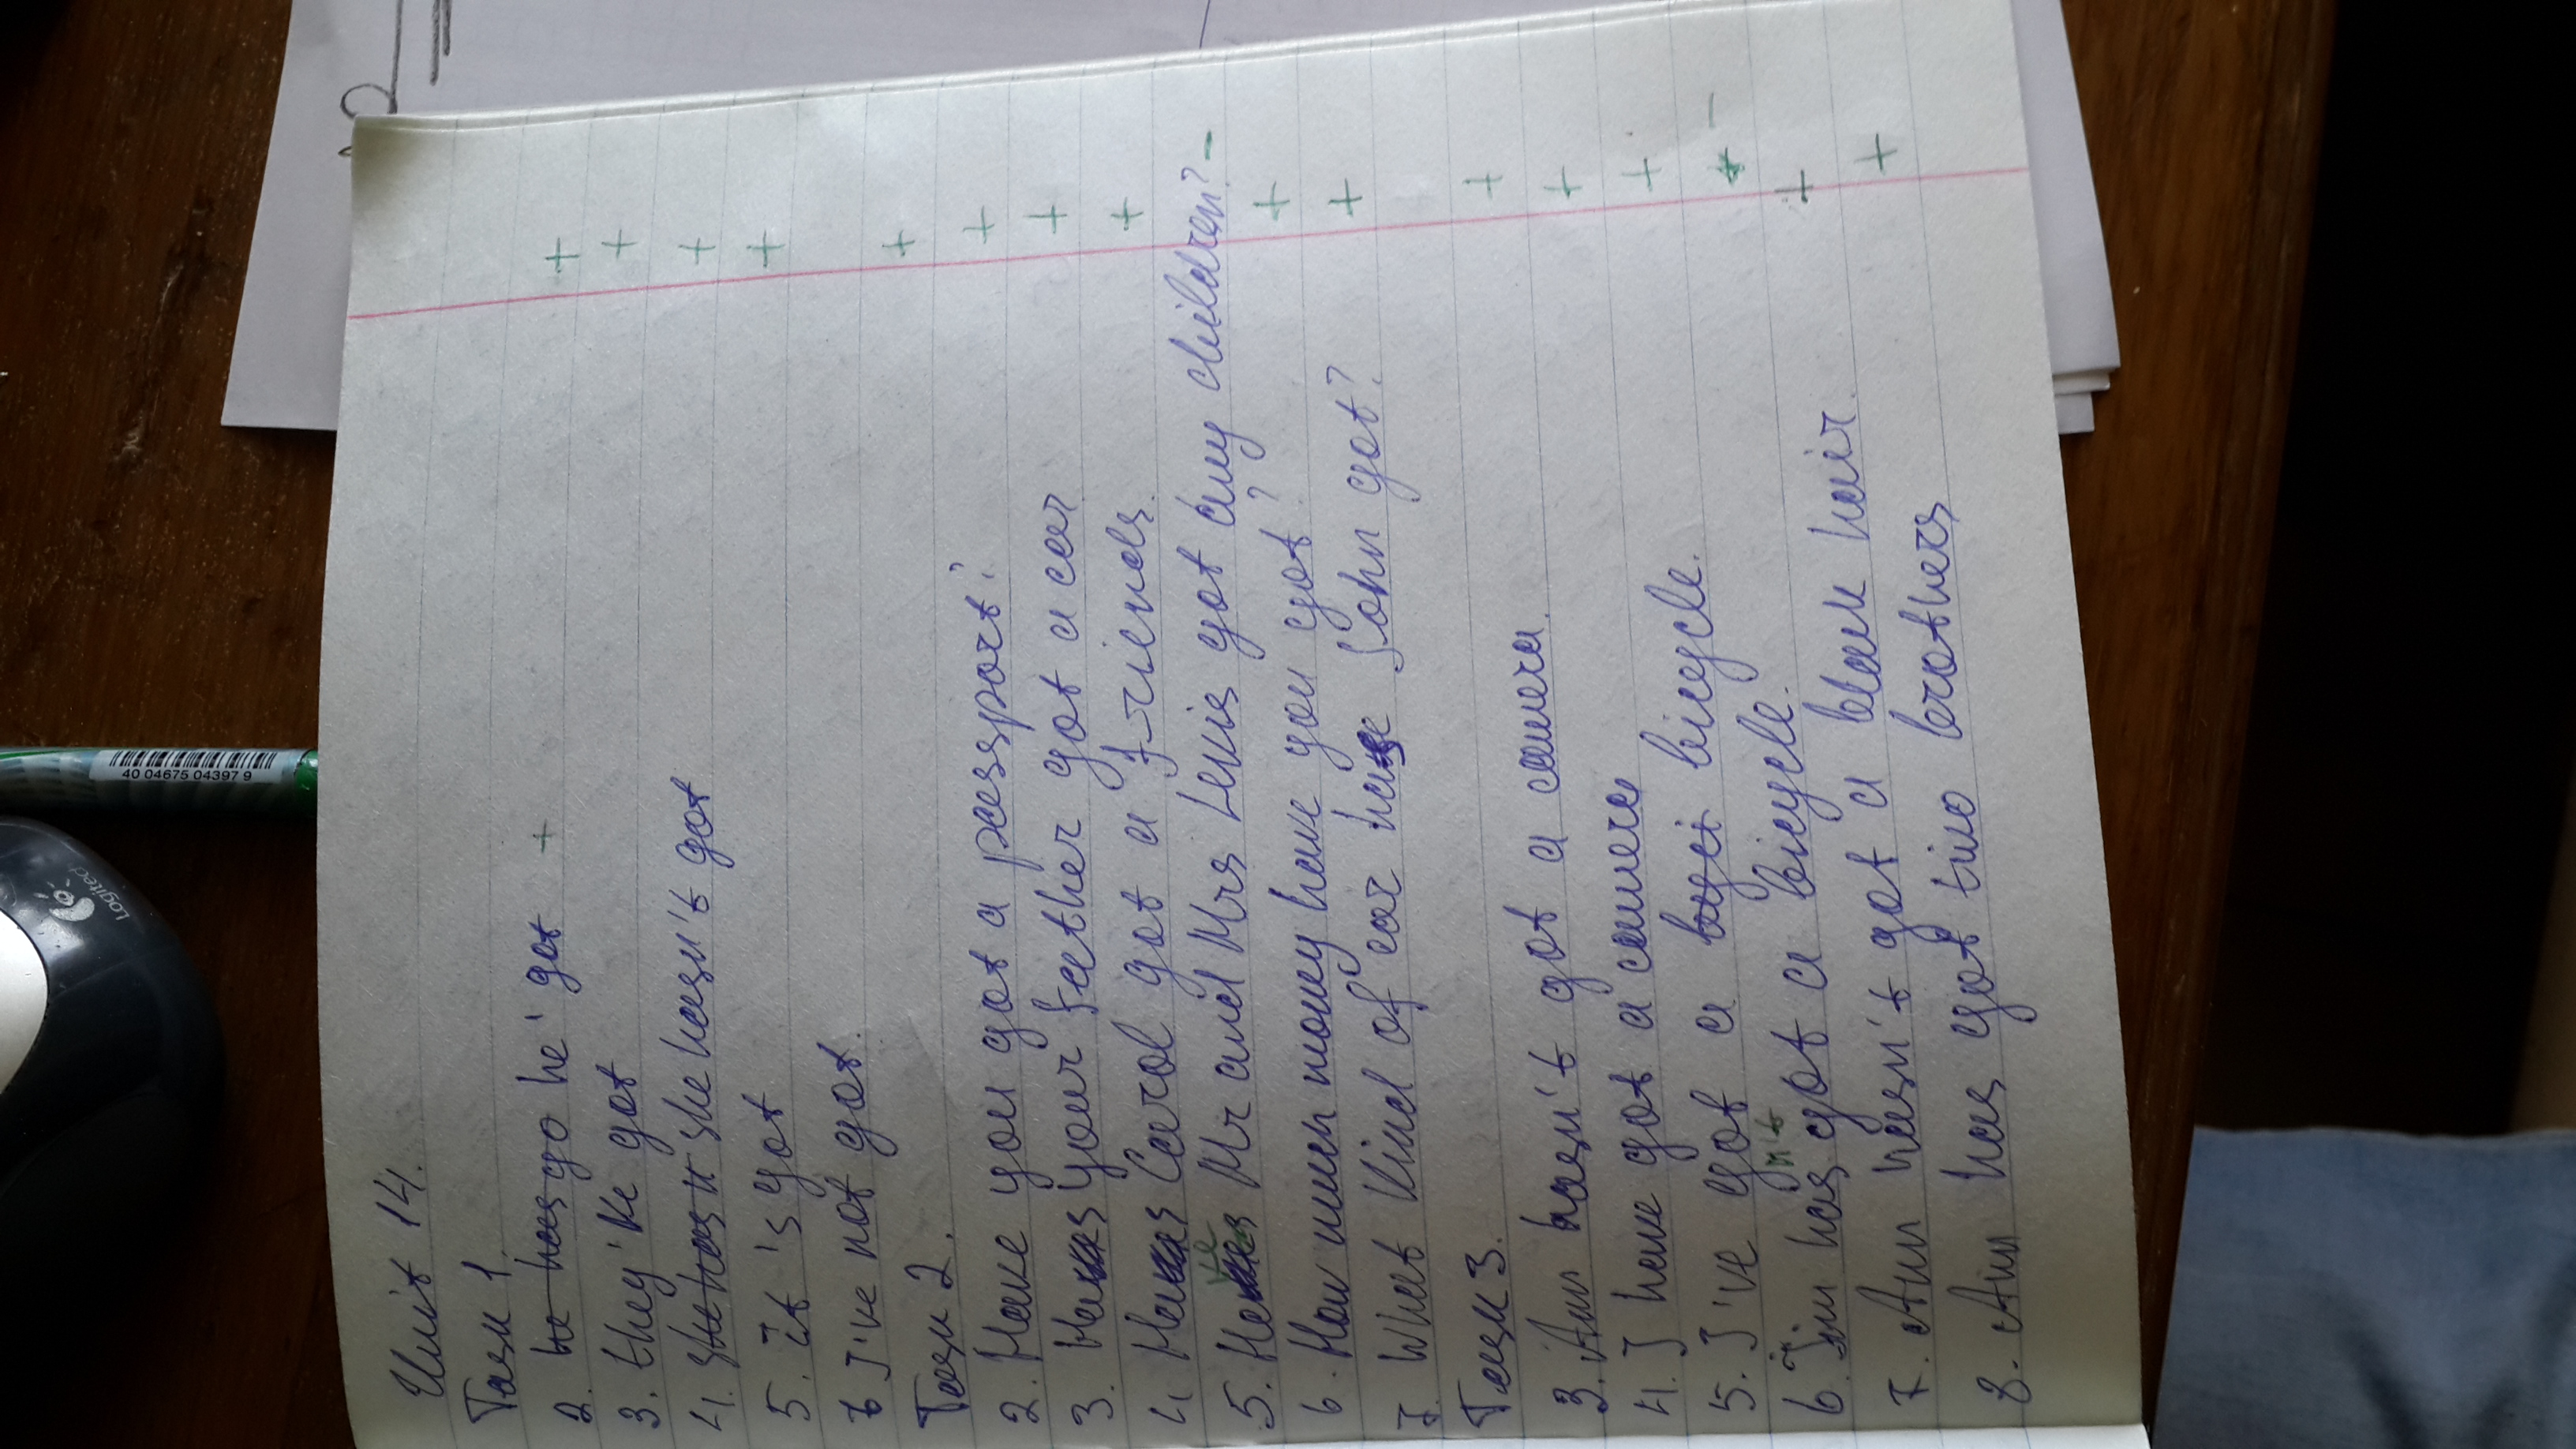 Logitec
40 04675 04397 9
Unit 14.
Task 1.
2. he has go he' got +
+
3. they've got
+
4. she has n she hasn't got
+
5. it 's got
+
6 I've not got.
+
Task 2.
2. Have you got a passport?
+
3. Has your father got a car
+
4. Has Carol got a friends.
+
ve
5. Has Mr and Mrs Lewis got any children? -
6. How much money have you got?
+
7. What kind of car has John got?
+
Task 3.
+
3. Ann hasn't got a camera.
+
4. I have got a camera
+
5. I've got a byci bicycle.
+ -
n't
6. Jim has got a bicycle.
+
7. Ann hasn't got a black hair.
+
8. Ann has got two brothers